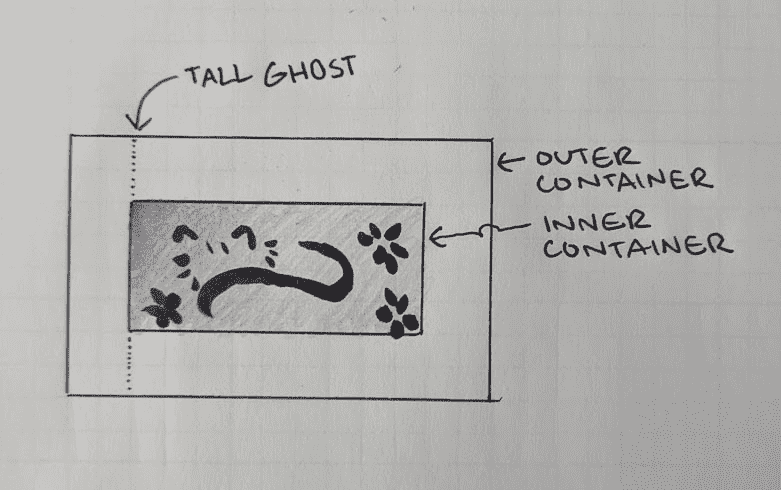 TALL GHOST
OUTER
CONTAINER
INNER
CONTAINER